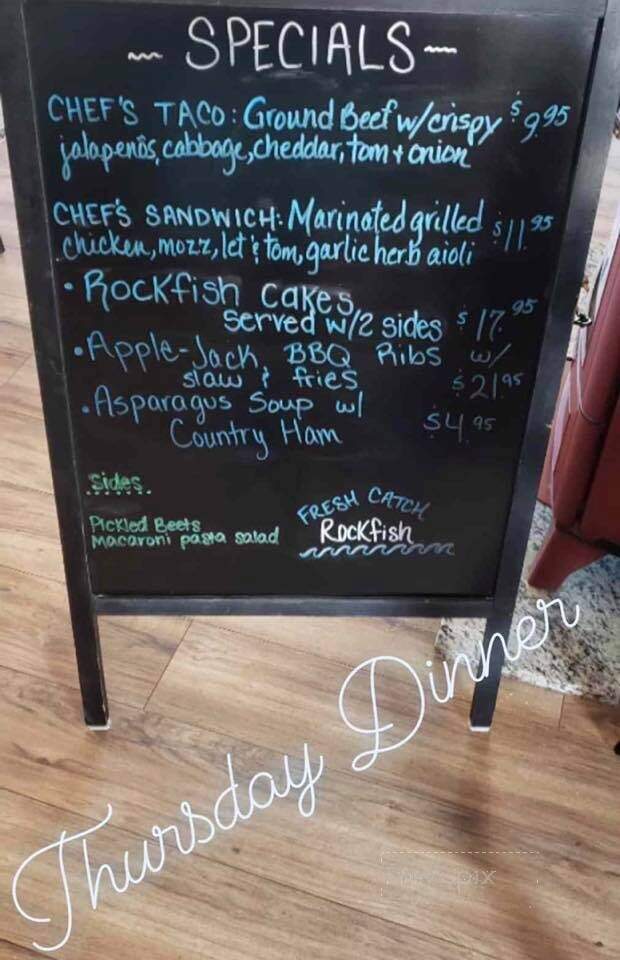 ~ SPECIALS ~
CHEF'S TACO: Ground Beef w/crispy $9.95
jalapenôs, cabbage, cheddar, tom + onion
CHEF'S SANDWICH: Marinated grilled $11.95
chicken, mozz, let & tom, garlic herb aioli
• Rockfish cakes
served w/2 sides $17.95
• Apple-Jack BBQ Ribs w/
slaw & fries $21.95
• Asparagus Soup w/ $4.95
Country Ham
Sides
Pickled Beets
Macaroni pasta salad
FRESH CATCH
Rockfish
Thursday Dinner